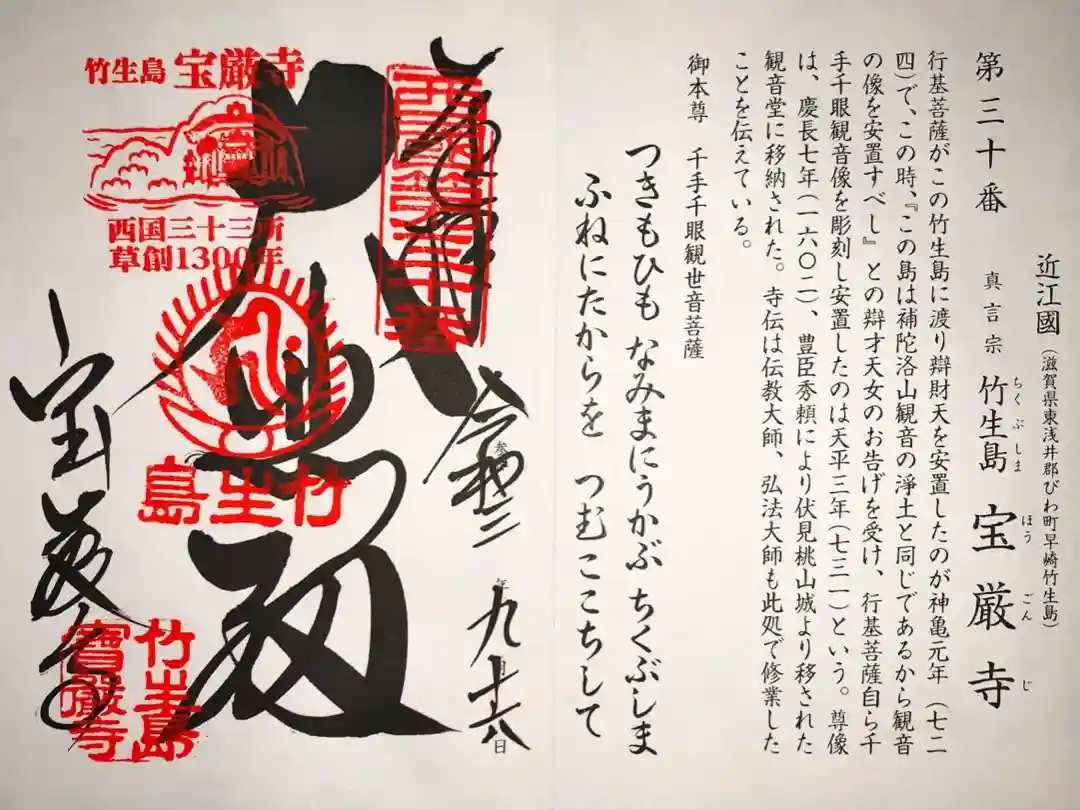 近江國(滋賀県東浅井郡びわ町早崎竹生島)
第三十番 真言宗 竹生島 宝厳寺
ちくぶしま ほうごんじ
行基菩薩がこの竹生島に渡り辯財天を安置したのが神亀元年(七二
四)で、この時、『この島は補陀洛山観音の浄土と同じであるから観音
の像を安置すべし』との辯才天女のお告げを受け、行基菩薩自ら千
手千眼観音像を彫刻し安置したのは天平三年(七三一)という。尊像
は、慶長七年(一六〇二)、豊臣秀頼により伏見桃山城より移された
観音堂に移納された。寺伝は伝教大師、弘法大師も此処で修業した
ことを伝えている。
御本尊 千手千眼観世音菩薩
つきもひも なみまにうかぶ ちくぶしま
ふねにたからを つむここちして
奉拝
令和二年九月十六日
西國第三十番
大悲殿
竹生島 宝厳寺
西国三十三所
草創1300年
竹生島
宝厳寺
竹生島
寶嚴寺